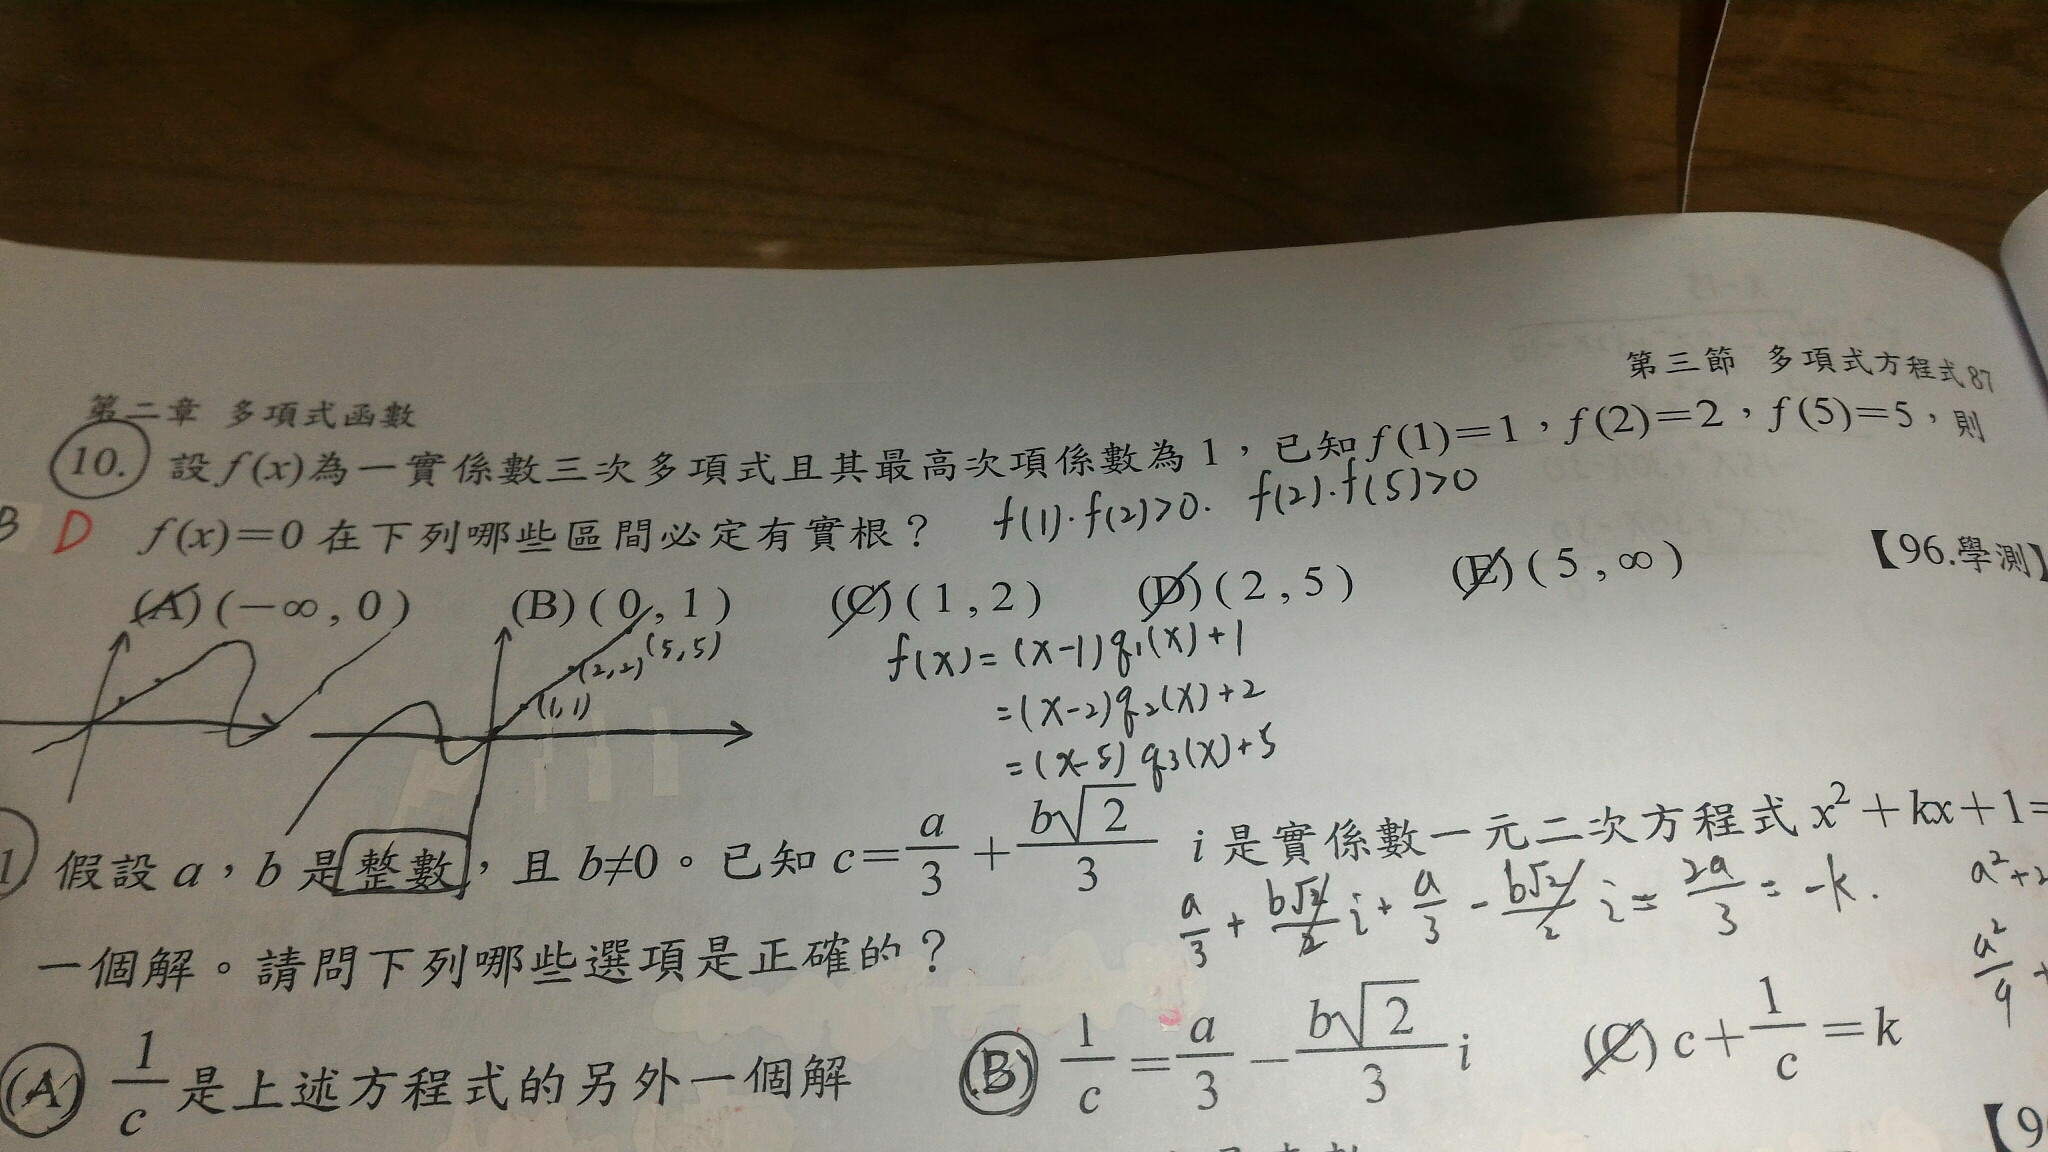 第三節 多項式方程式 87
第二章 多項式函數
10. 設 f(x)為一實係數三次多項式且其最高次項係數為1，已知 f(1)=1，f(2)=2，f(5)=5，則
D f(x)=0 在下列哪些區間必定有實根？ f(1)·f(2)>0. f(2)·f(5)>0
【96.學測】
(A)(−∞,0) (B)(0,1) (C)(1,2) (D)(2,5) (E)(5,∞)
(5,5)
(2,2)
(1,1)
f(x)=(x-1)q₁(x)+1
=(x-2)q₂(x)+2
=(x-5)q₃(x)+5
假設 a，b 是整數，且 b≠0。已知 c=a/3+b√2/3 i 是實係數一元二次方程式 x²+kx+1=
a/3+b√2/2 i+a/3-b√2/2 i=2a/3=-k.
一個解。請問下列哪些選項是正確的？
(A) 1/c 是上述方程式的另外一個解 (B) 1/c=a/3−b√2/3 i (C) c+1/c=k